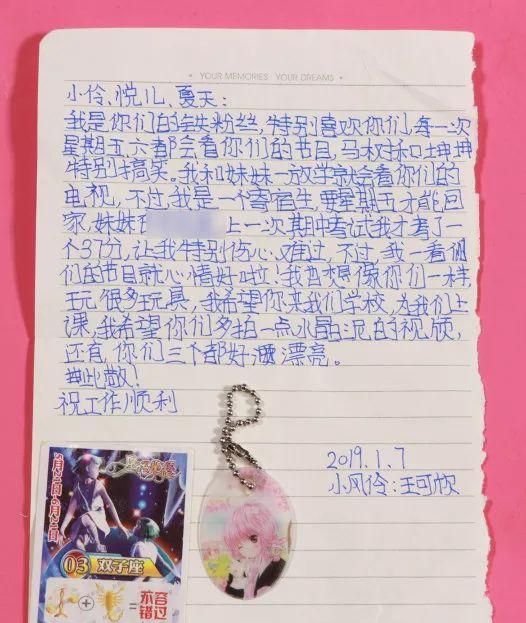 • YOUR MEMORIES YOUR DREAMS •
小伶、悦儿、夏天:
我是你们的铁粉丝,特别喜欢你们,每一次
星期五六都会看你们的节目,马权和坤坤
特别搞笑。我和妹妹一放学就会看你们的
电视,不过,我是一个寄宿生,要星期五才能回
家,妹妹
上一次期中考试我才考了
一个37分,让我特别伤心、难过,不过,我一看你
们的节目就心情好啦!我也想像你们一样,
玩很多玩具,我希望你来我们学校,为我们上
课,我希望你们多拍一点水晶泥的视频,
还有,你们三个都好漂亮。
此敬!
祝工作顺利
2019.1.7
小风伶:王可欣
5月21日-6月21日
03 双子座
+ = 不容错过